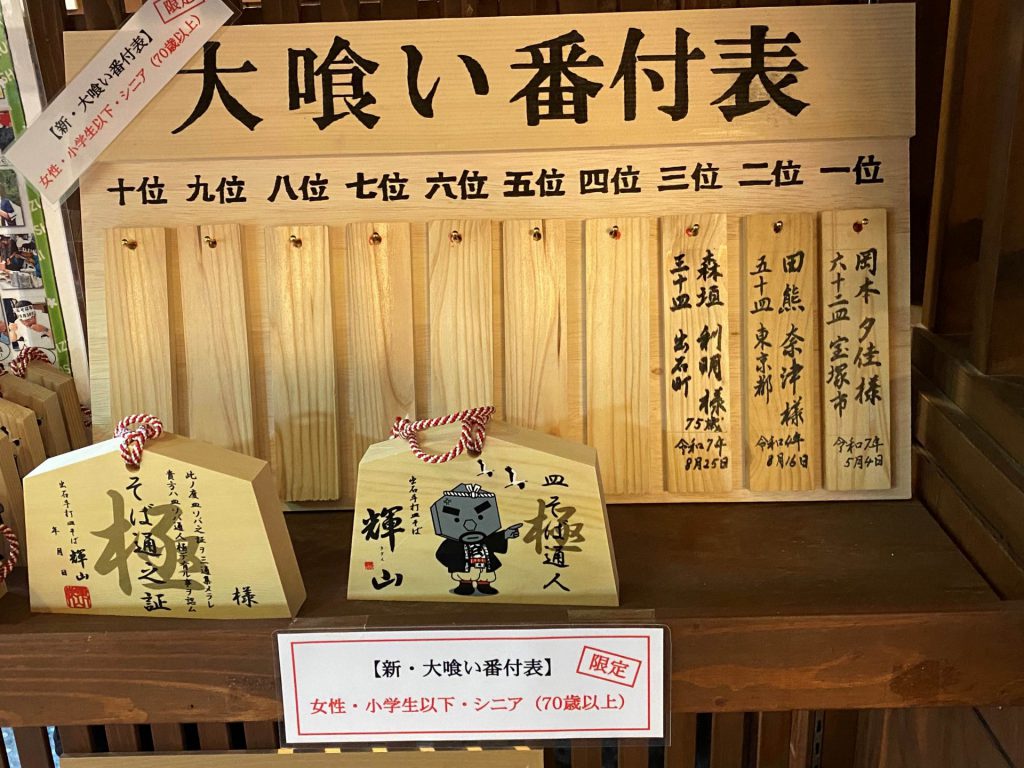 大喰い番付表
限定
【新・大喰い番付表】
女性・小学生以下・シニア（70歳以上）
一位
二位
三位
四位
五位
六位
七位
八位
九位
十位
岡本 夕佳様
六十二皿 宝塚市
令和7年
5月4日
田熊 奈津様
五十皿 東京都
令和4年
8月16日
森垣 利明様
75歳
三十皿 出石町
令和7年
8月25日
皿そば通人
極
出石手打皿そば
輝山
様
此ノ度皿ソバ之証ヲ三通集メラレ
貴方ハ皿ソバ通人
極
そば通之証
出石手打皿そば 輝山
年 月 日
【新・大喰い番付表】
限定
女性・小学生以下・シニア（70歳以上）